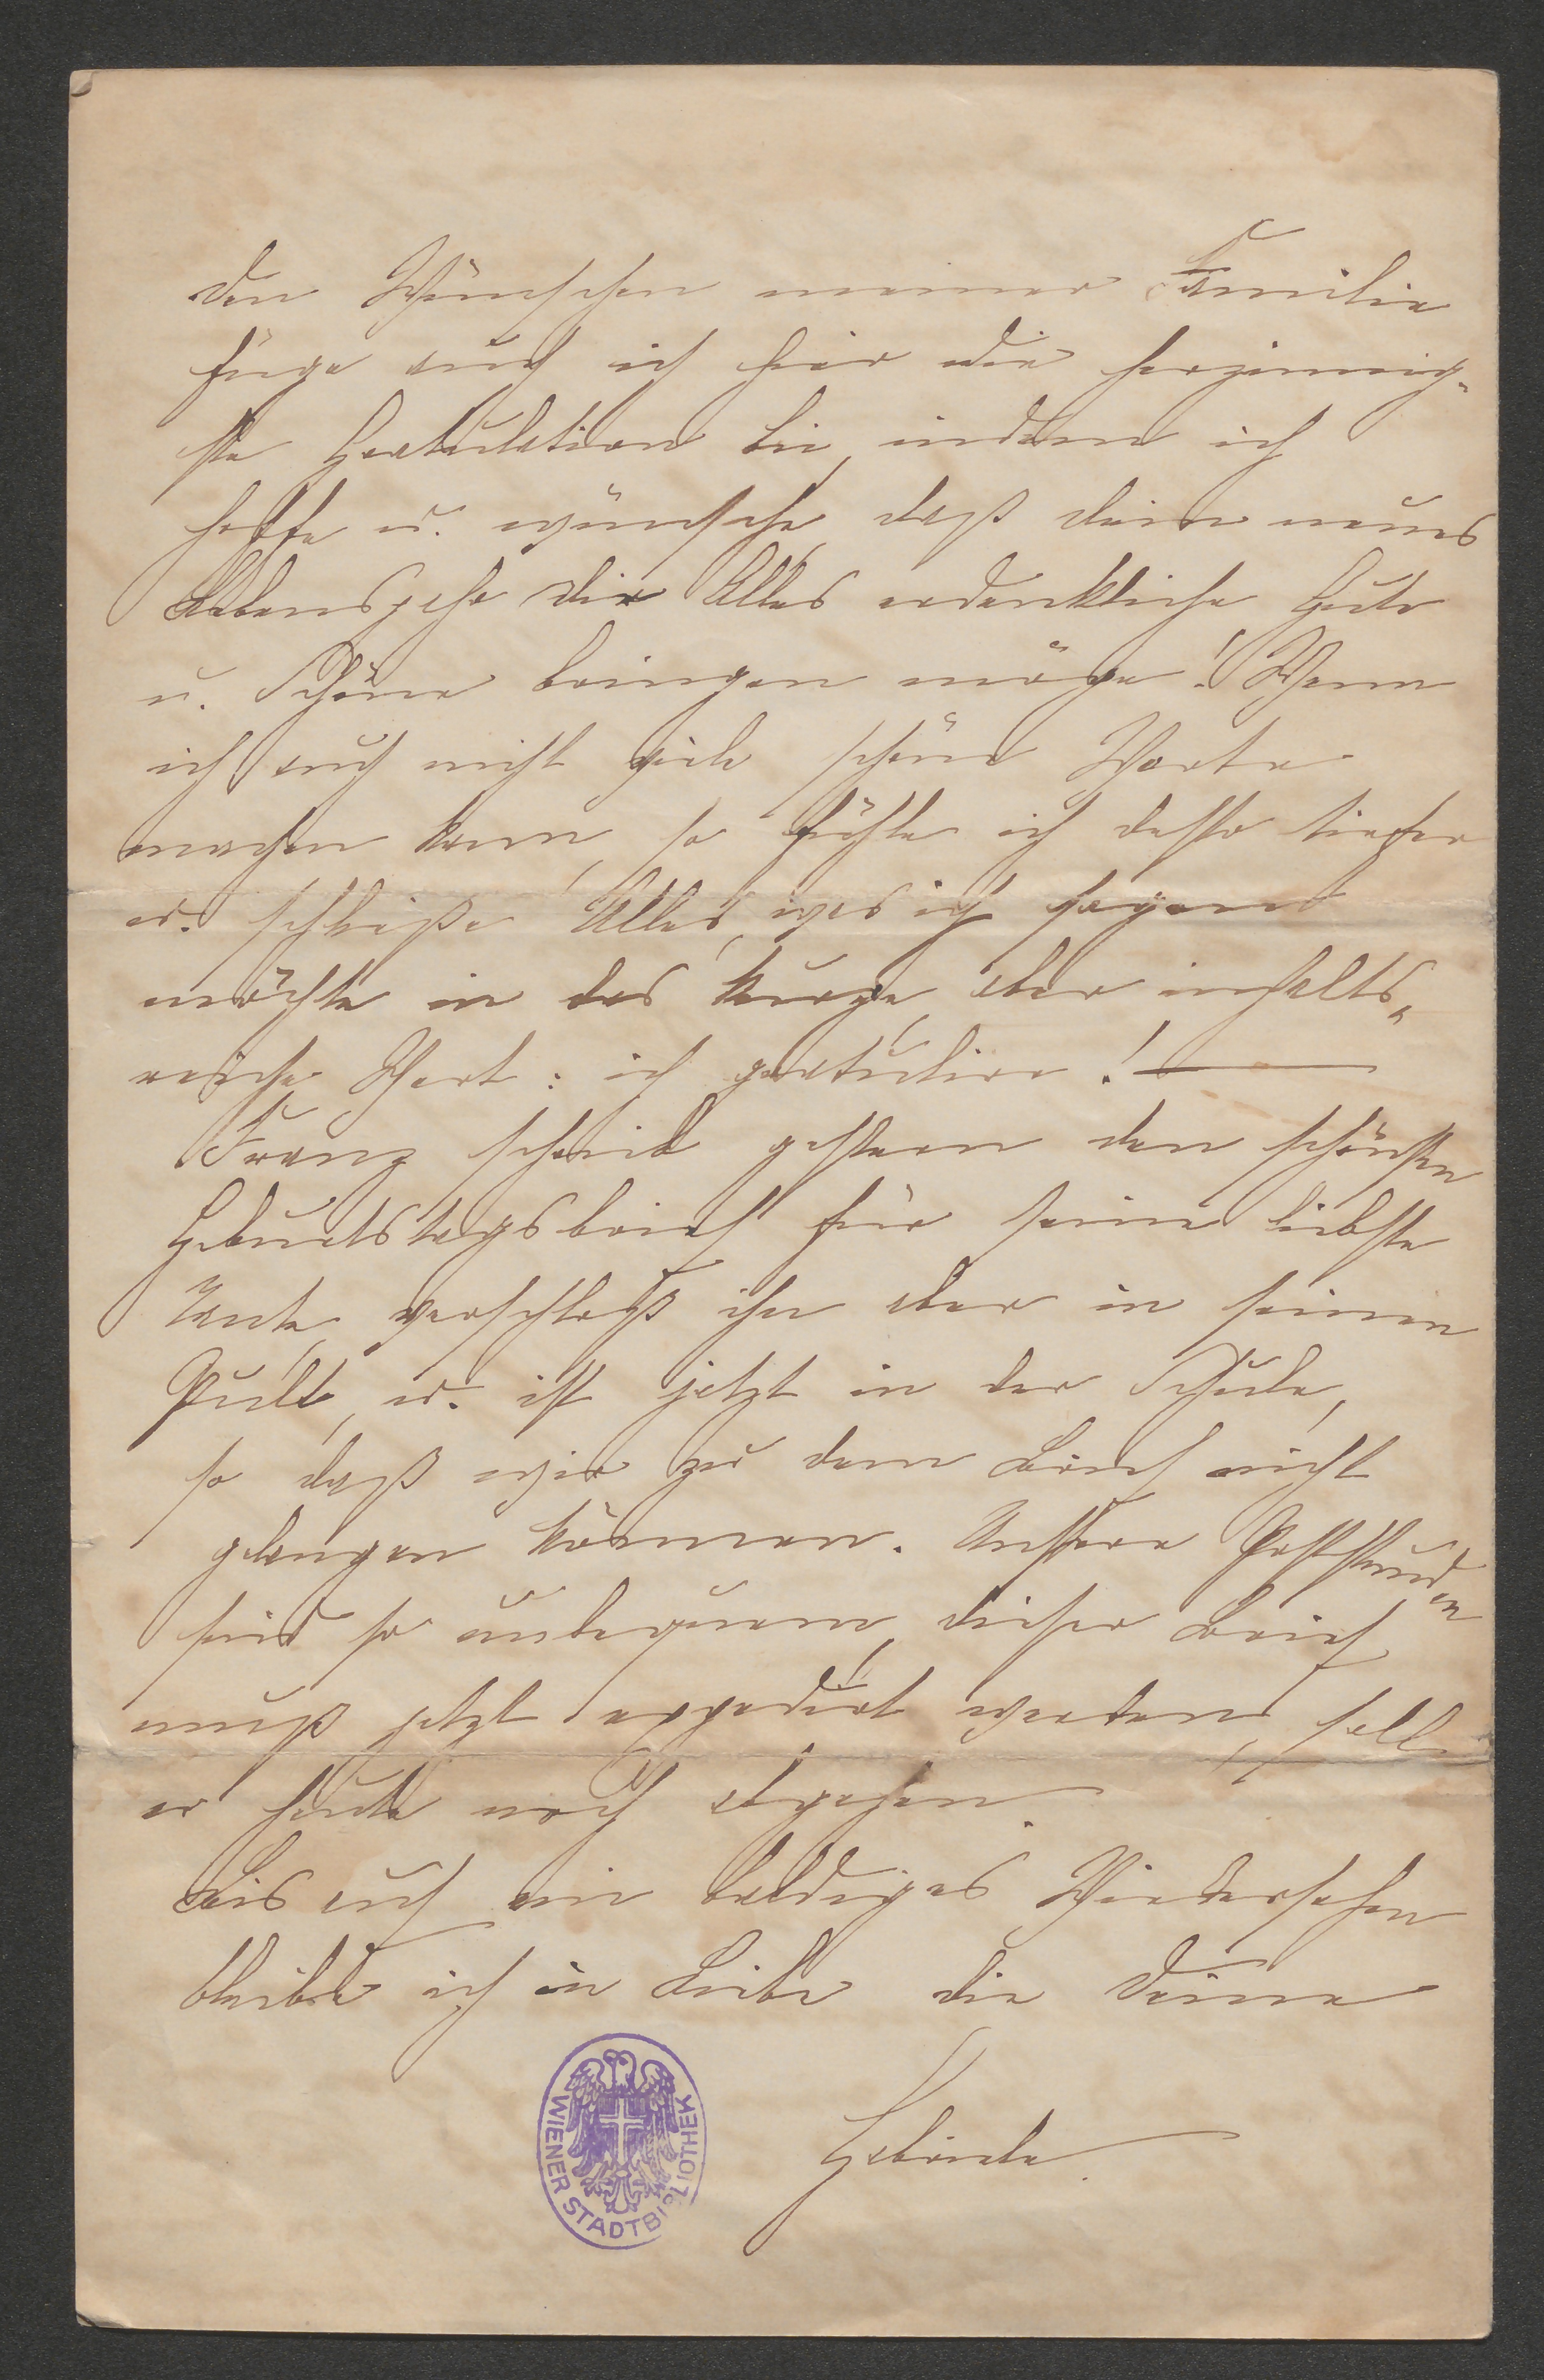 Den Wünschen meiner Familie
füge auch ich hier die herzinnig-
ste Gratulation bei, indem ich
hoffe u. wünsche, daß dein neues
Lebensjahr dir Alles erdenkliche Gute
u. Schöne bringen möge! Wenn
ich auch nicht viele schöne Worte
machen kann, so fühle ich desto tiefer
u. schließe Alles, was ich sagen
möchte in das kurze, aber inhalts-
reiche Wort: ich gratulire! —
Franz schrieb gestern den schönsten
Geburtstagsbrief für seine liebste
Tante, verschloß ihn aber in seinen
Pult, u. ist jetzt in der Schule,
so daß wir zu dem Brief nicht
gelangen können. Unsere Poststunden
sind so unbequem, dieser Brief
muß jetzt expedirt werden, soll
er heute noch abgehen.
Bis auf ein baldiges Wiedersehen
bleibe ich in Liebe die Deine
Gabriele
WIENER STADTBIBLIOTHEK